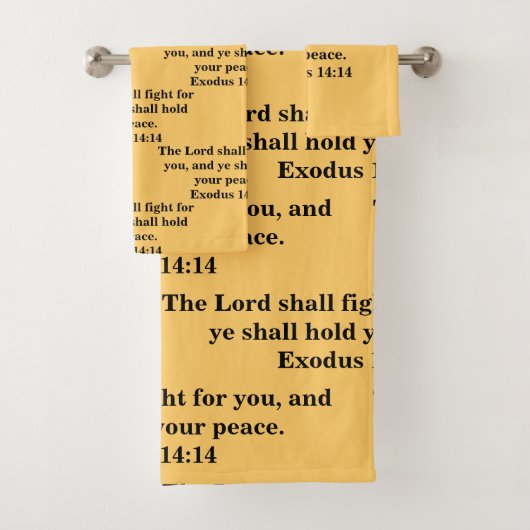 you, and ye sh
your peace.
Exodus 14
ll fight for
shall hold
eace.
14:14
The Lord shall
you, and ye sh
your peace.
Exodus 14
ll fight for
shall hold
eace.
14:14
ace.
peace.
s 14:14
rd sha
shall hold y
Exodus 1
you, and
ace.
14:14
The Lord shall fig
ye shall hold y
Exodus 1
ht for you, and
your peace.
14:14